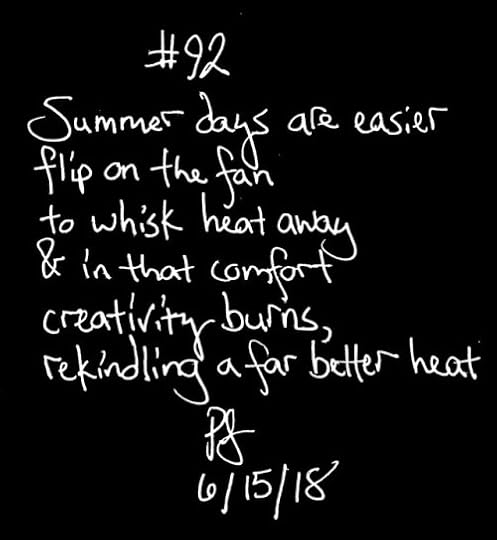 #92
Summer days are easier
flip on the fan
to whisk heat away
& in that comfort
creativity burns,
rekindling a far better heat
PJ
6/15/18